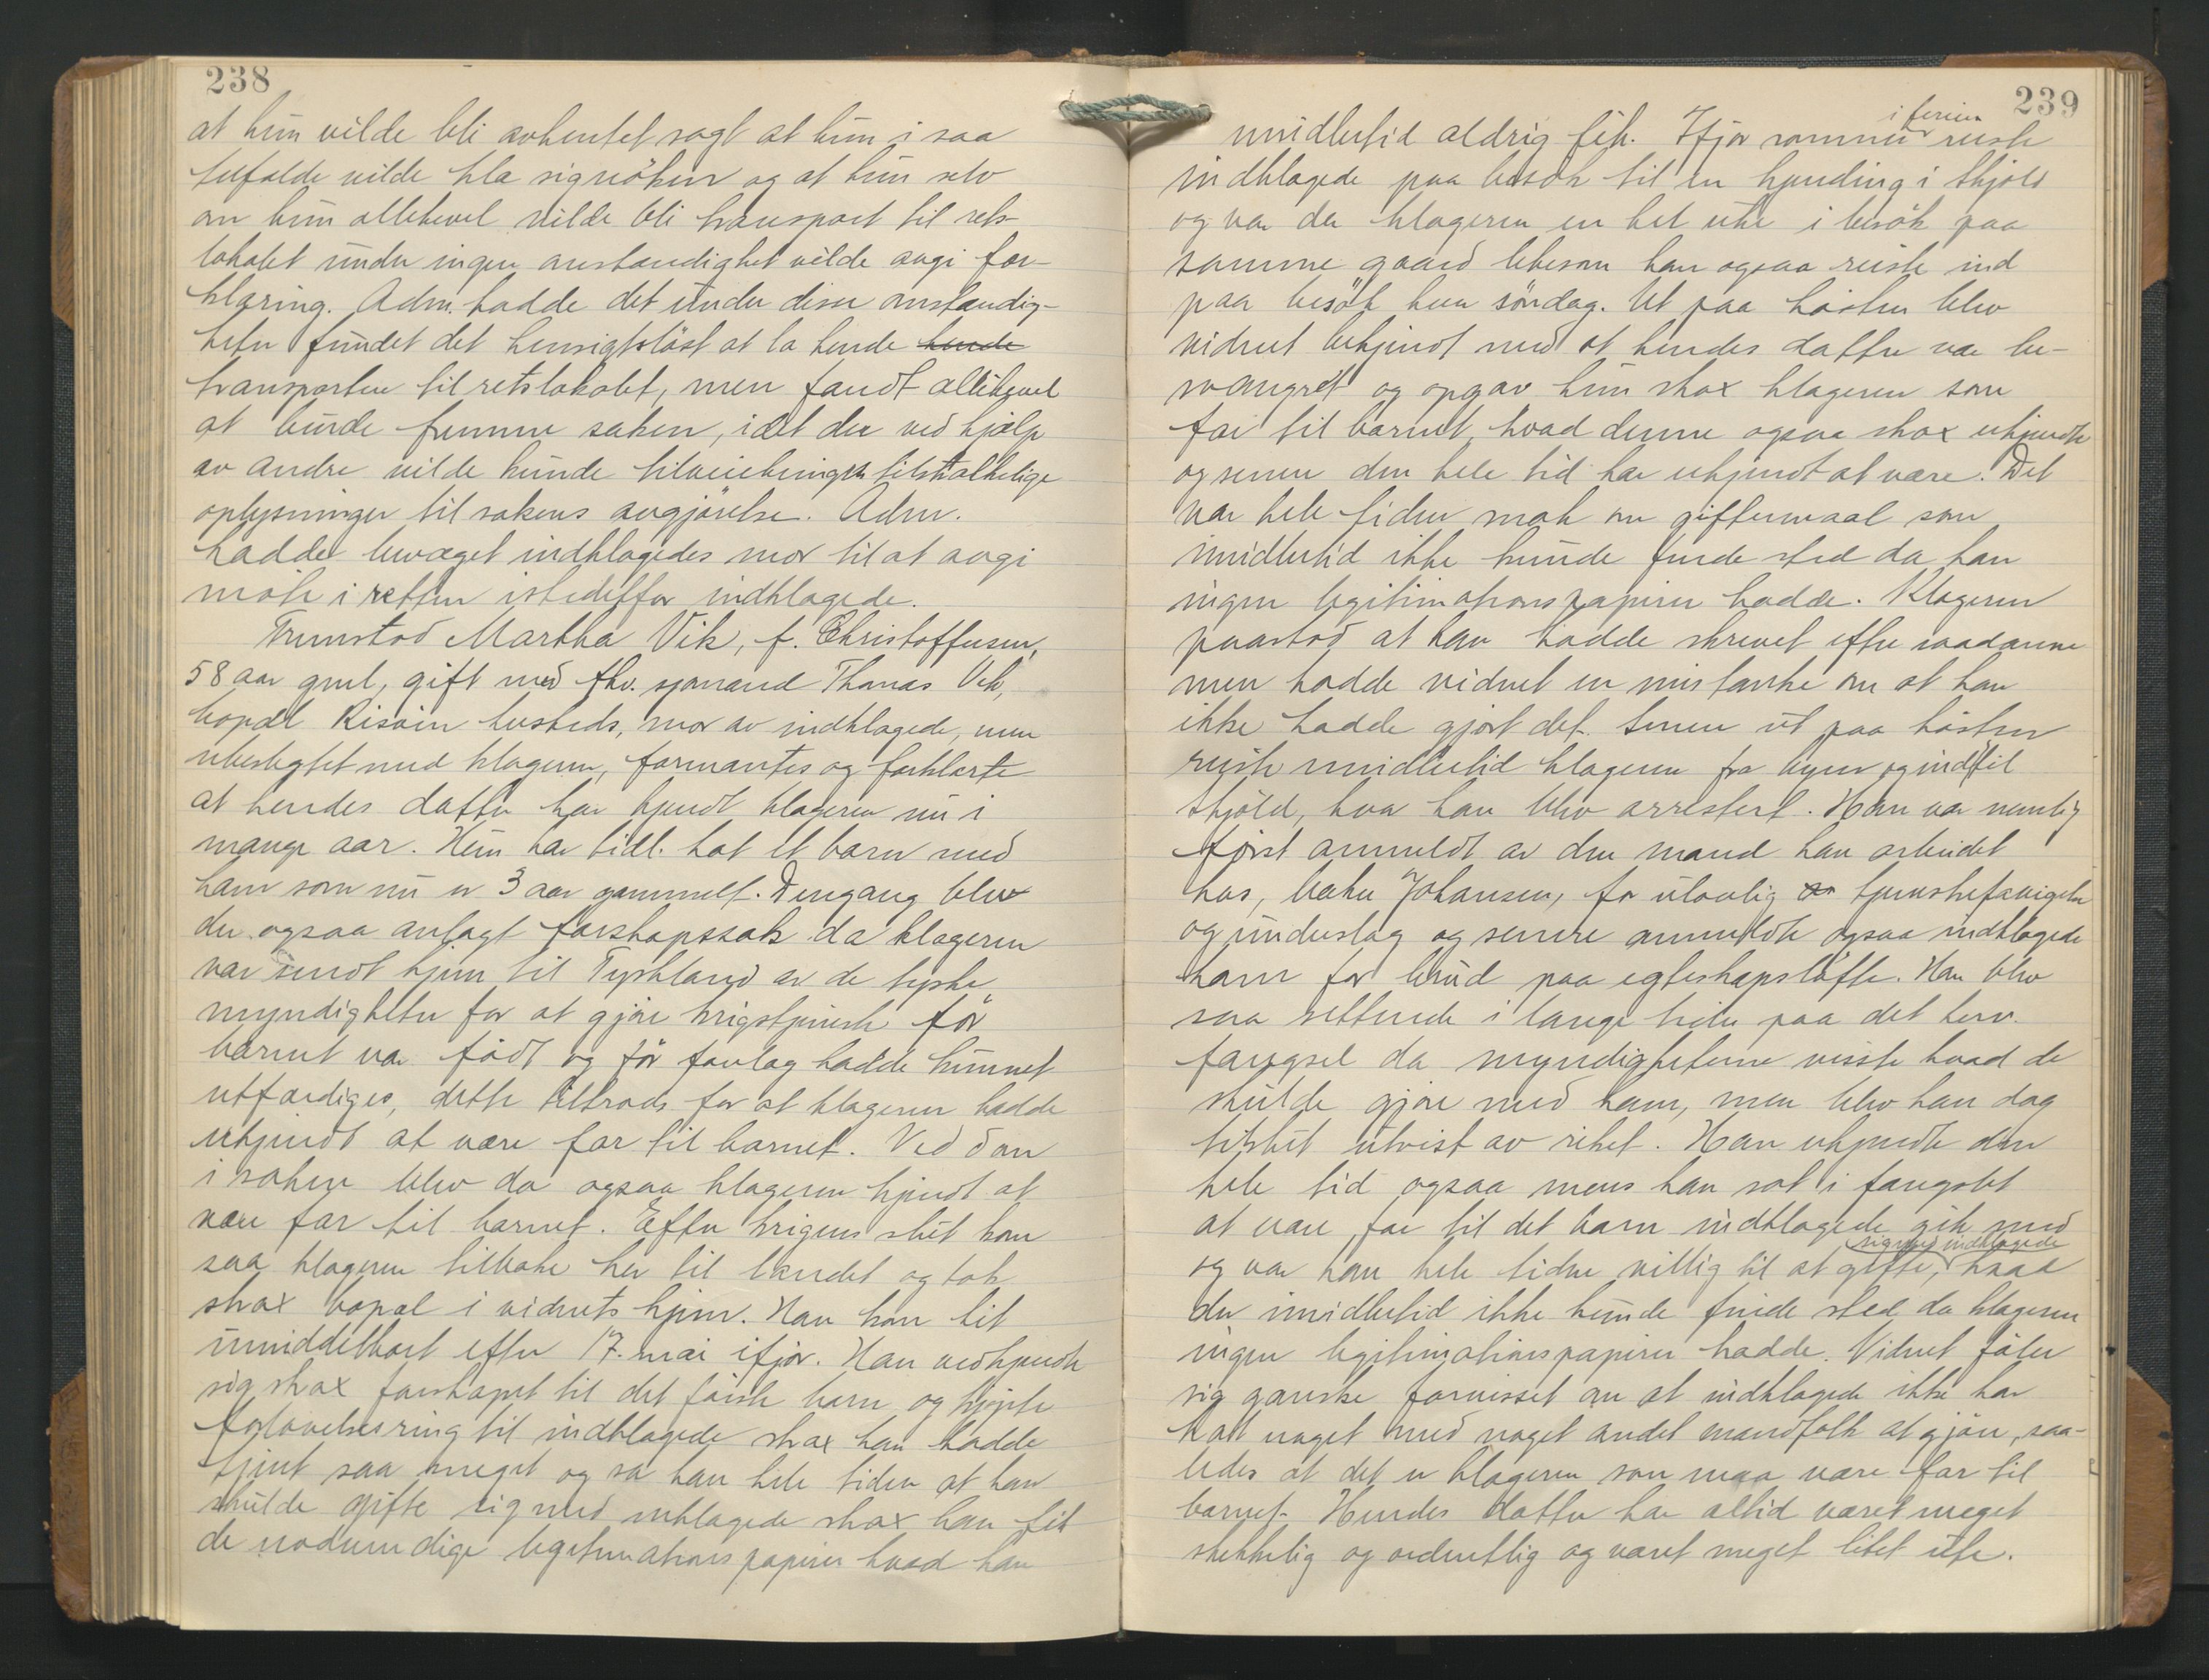 238
at hun vilde bli avhentet sagt at hun i saa
tilfælde vilde kla sig nöken og at hun selv
om hun allikevel vilde bli transport til rets-
lokalet under ingen omstændighet vilde avgi for-
klaring. Adm. hadde det under disse omstændig-
heter fundet det hensigtslöst at la hende hende
transportere til retslokalet, men fandt allikevel
at burde fremme saken, idet der ved hjælp
av andre vilde kunde tilveiebringes tilstrækkelige
oplysninger til sakens avgjörelse. Adm.
hadde bevæget indklagedes mor til at avgi
möte i retten istedetfor indklagede.
Fremstod Martha Vik, f. Christoffersen,
58 aar gml, gift med fhv. sjömand Thomas Vik,
bopæl Risöin husteds, mor av indklagede, men
ubeslegtet med klageren, formantes og forklarte
at hendes datter har kjendt klageren nu i
mange aar. Hun har tidl. hat et barn med
ham som nu er 3 aar gammelt. Dengang blev
der ogsaa anlagt farskapssak da klageren
var sendt hjem til Tyskland av de tyske
myndigheter for at gjöre krigstjeneste för
barnet var födt og för forelæg hadde kunnet
utfærdiges, dette tiltrods for at klageren hadde
erkjendt at være far til barnet. Ved dom
i saken blev da ogsaa klageren kjendt at
være far til barnet. Efter krigens slut kom
saa klageren tilbake her til landet og tok
strax bopæl i vidnets hjem. Han kom hit
umiddelbart efter 17. mai ifjor. Han vedkjendte
sig strax farskapet til det förste barn og kjöpte
forlovelsesring til indklagede strax han hadde
tjent saa meget og sa han hele tiden at han
skulde gifte sig med indklagede strax han fik
de nödvendige legitimationspapirer hvad han
239
imidlertid aldrig fik. Ifjor sommer i ferien reiste
indklagede paa besök til en kjending i Skjold
og var der klageren en hel uke i besök paa
samme gaard likesom han ogsaa reiste ind
paa besök hver söndag. Ut paa hösten blev
vidnet bekjendt med at hendes datter var be-
svangret og opgav hun strax klageren som
far til barnet, hvad denne ogsaa strax erkjendte
og senere den hele tid har erkjendt at være. Det
var hele tiden snak om giftermaal som
imidlertid ikke kunde finde sted da han
ingen legitimationspapirer hadde. Klageren
paastod at han hadde skrevet efter saadanne
men hadde vidnet en mistanke om at han
ikke hadde gjort det. Senere ut paa hösten
reiste imidlertid klageren fra byen og ind til
Skjold, hvor han blev arrestert. Han var nemlig
först anmeldt av den mand han arbeidet
hos, baker Johansen, for ulovlig tjenestefravigelse
og underslag og senere anmeldte ogsaa indklagede
ham for brud paa egteskapslöfte. Han blev
saa sittende i lange tider paa det herv.
fængsel da myndigheterne visste hvad de
skulde gjöre med ham, men blev han dog
tilslut utvist av riket. Han erkjendte den
hele tid ogsaa mens han sat i fængslet
at være far til det barn indklagede gik med
og var han hele tiden villig til at gifte sig med indklagede, hvad
der imidlertid ikke kunde finde sted da klageren
ingen legitimationspapirer hadde. Vidnet föler
sig ganske forvisset om at indklagede ikke har
hat noget med noget andet mandfolk at gjöre, saa-
ledes at det er klageren som maa være far til
barnet. Hendes datter har altid været meget
skikkelig og ordentlig og været meget litet ute.